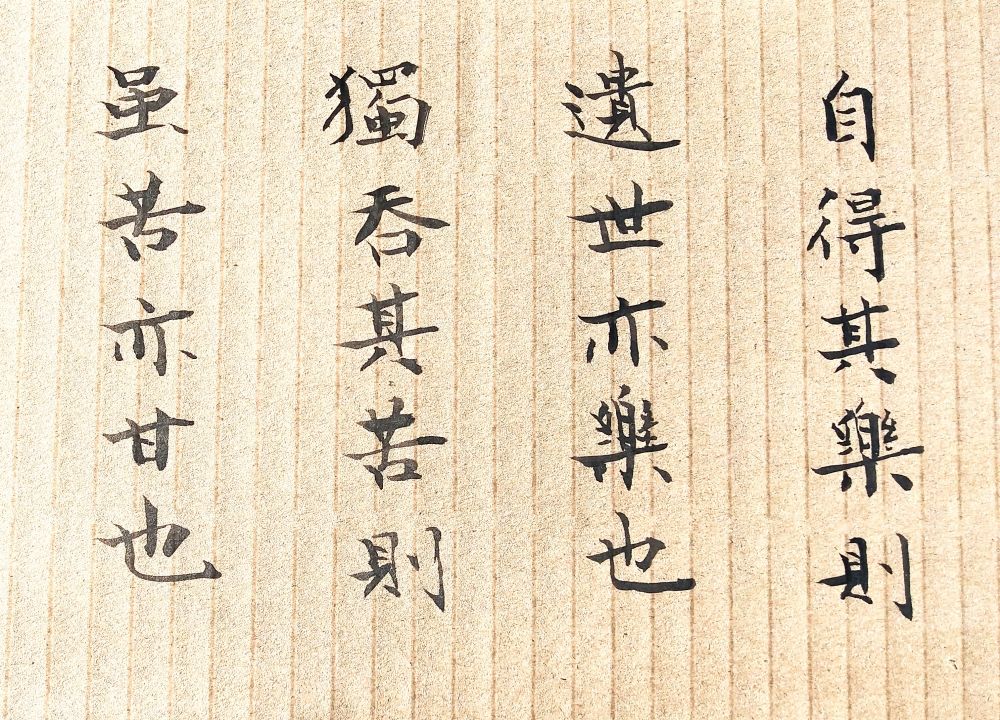 自得其樂則
遺世亦樂也
獨吞其苦則
虽苦亦甘也